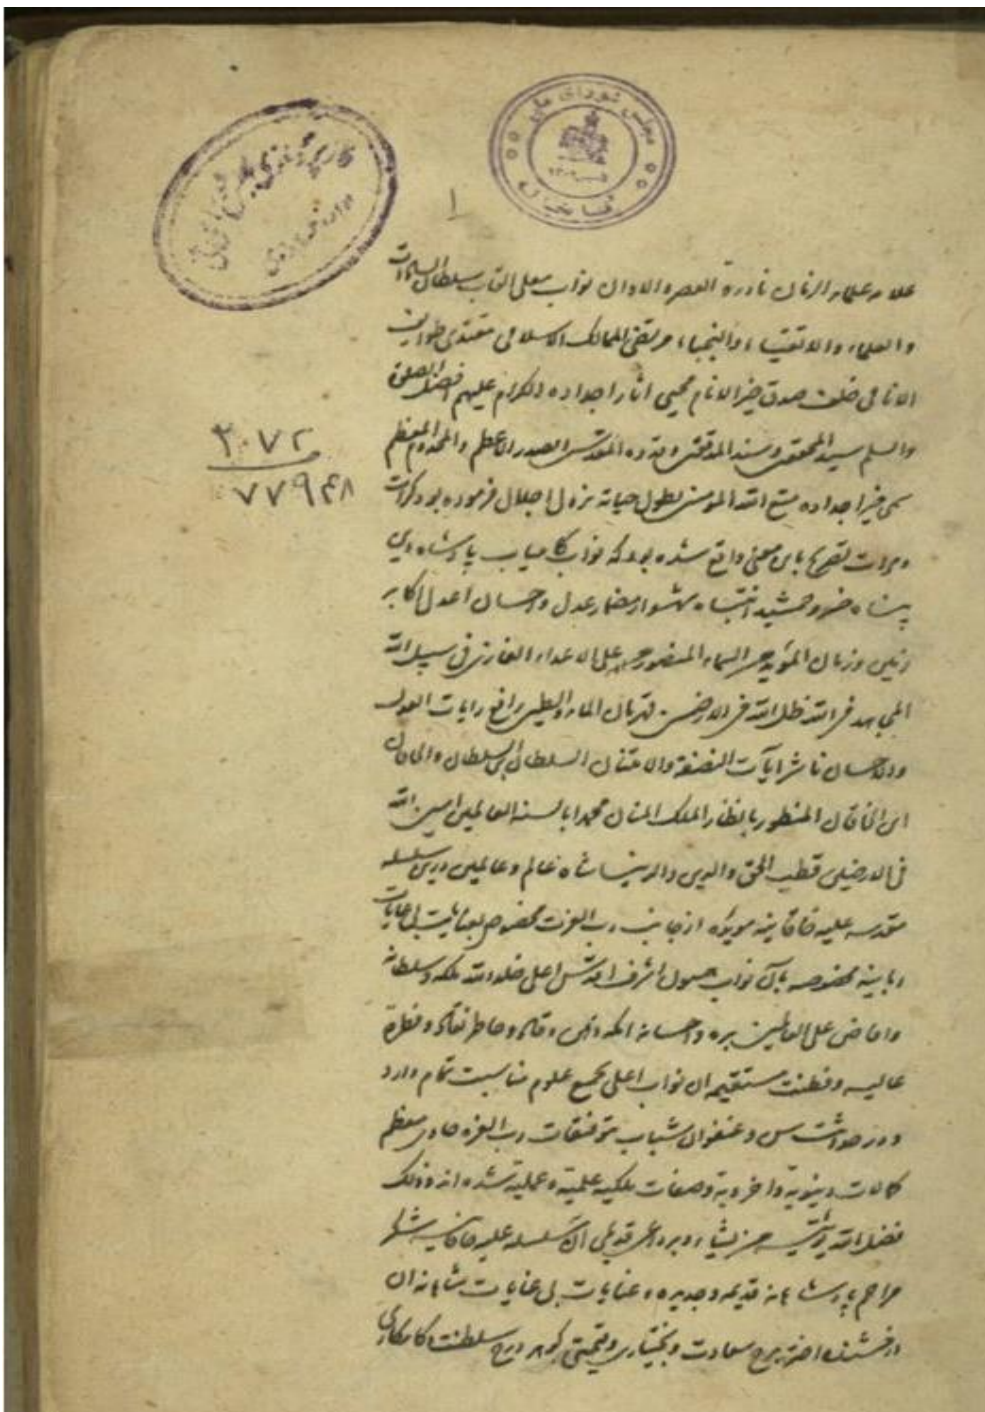 مجلس شورای ملی
کتابخانه
۱
علامه علماء الزمان نادرة العصر والاوان نواب معلی القاب سلطان السادات
والعلماء والاتقیاء والنجباء مرتضی الممالک الاسلامی مقتدی طوایف
الانامی خلف صدق خیر الانام محیی اثار اجداده الکرام علیهم افضل الصلوة
والسلم سید المحققین و سند المدققین وقدوه المقدسین الصدر الاعظم والمخدوم المعظم
۳۰۷۲
۷۷۹۴۸
سمی خیر اجداده متع الله المومنین بطول حیاته نزول اجلال فرموده بود کرات
و مرات تصریح باین معنی واقع شده بود که نواب کامیاب پادشاه دین
پناه خسرو جمشید انتباه شهسوار مضمار عدل و احسان اعدل اکابر
زمین و زمان المؤید من السماء المنصور علی الاعداء الغازی فی سبیل الله
المجاهد فی الله ظل الله فی الارضین قهرمان الماء والطین رافع رایات العدل
والاحسان ناشر آیات النصفة والامتنان السلطان بن السلطان والخاقان
ابن الخاقان المنظور بانظار الملک المنان محمدا بالسنة العالمین امین الله
فی الارضین قطب الحق والدین والدنیا شاه عالم و عالمین درین سلسله
مقدسه علیه خاقانیه مویده از جانب رب العزت مخصوص بعنایت بی غایات
ربانیه مخصوصه بآن نواب همیون اشرف اقدس اعلی خلد الله ملکه و سلطانه
وافاض علی العالمین بره و احسانه اند و ذهن وقاد و خاطر نقاد و فطرة
عالیه و فطنت مستقیمه ان نواب اعلی بجمیع علوم مناسبت تمام دارد
و در حداثت سن و عنفوان شباب بتوفیقات رب العزه حاوی معظم
کمالات دینویة و اخرویة و صفات ملکیه علمیة و عملیة شده اند و ذلک
فضل الله یؤتیه من یشاء و بر داعی قدیمی آن سلسله علیه خاقانیه
مراحم پادشاهانه قدیمه و جدیده و عنایات بی غایات شاهانه ان
درخشنده اختر برج سعادت و بختیاری و قیمتی گوهر درج سلطنت و کامکاری